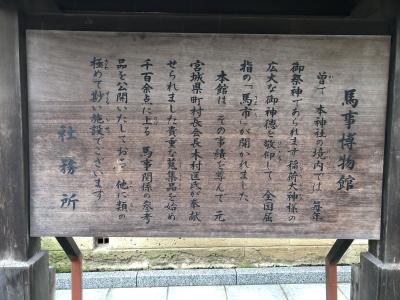 馬事博物館
曽て 本神社の境内では 毎年
御祭神であられます稲荷大神様の
広大な御神徳を敬仰して 全国屈
指の「馬市」が開かれました
本館は その事績を尊んで 元
宮城県町村長会長木村匡氏が奉献
せられました貴重な蒐集品を始め
千百余点に上る 馬事関係の参考
品を公開いたしており 他に類の
極めて尠い施設でございます
社務所